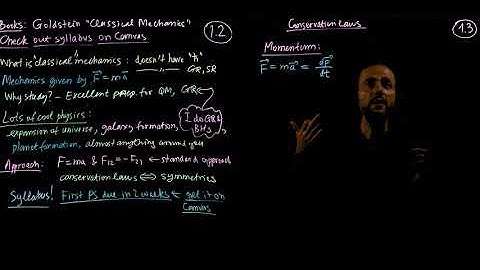 Books: Goldstein "Classical Mechanics"
Check out syllabus on Canvas
1.2
What is "classical" mechanics: doesn't have "ħ"
GR, SR
Mechanics given by F⃗ = ma⃗
Why study? - Excellent prep. for QM, GR
Lots of cool physics:
I do GR & BHs
expansion of universe, galaxy formation,
planet formation, almost anything around you
Approach: F=ma & F₁₂=-F₂₁ ← standard approach
conservation laws ⇔ symmetries
Syllabus! First PS due in 2 weeks ← get it on
Canvas
Conservation Laws
1.3
Momentum:
F⃗ = ma⃗ = dp⃗/dt